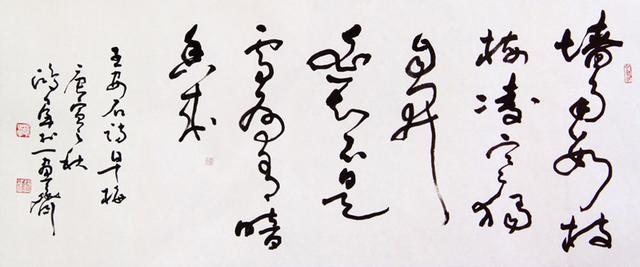 墙角数枝
梅凌寒独
自开
遥知不是
雪为有暗
香来
王安石诗早梅
庚寅之秋
鸿 于一画斋